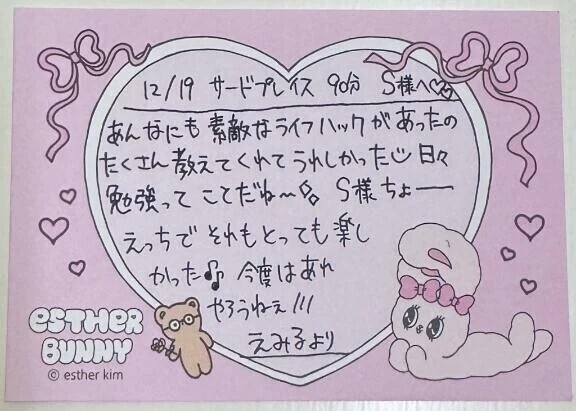 12/19 サードプレイス 90分 S様へ♡♡
あんなにも 素敵なライフハックがあったの
たくさん教えてくれてうれしかった☺ 日々
勉強って ことだね〜 S様ちょー
えっちで それもとっても楽し
かった♪ 今度はあれ
やろうねぇ!!!
えみるより
ESTHER
BUNNY
© esther kim